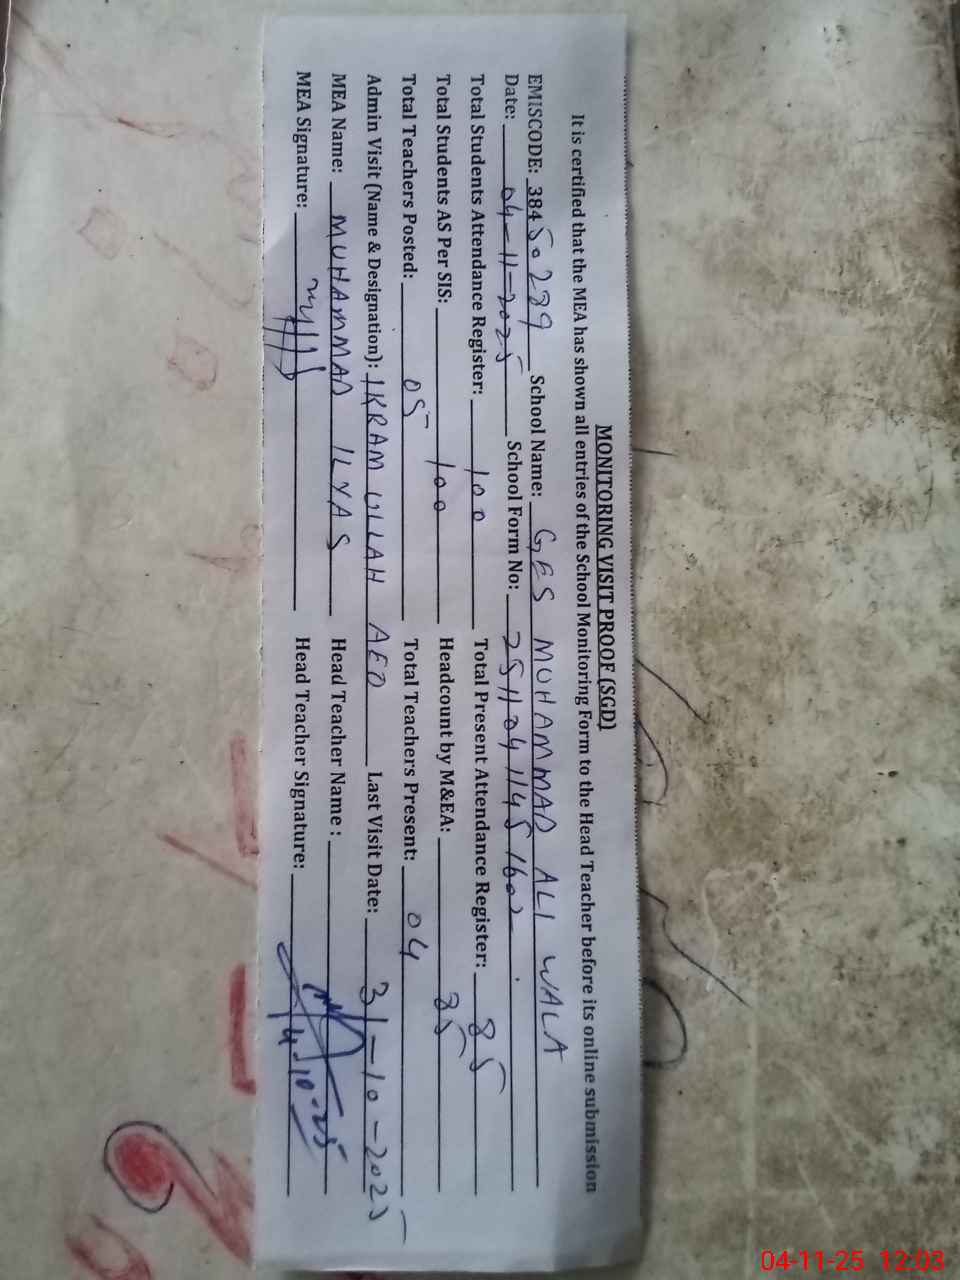 MONITORING VISIT PROOF (SGD)
It is certified that the MEA has shown all entries of the School Monitoring Form to the Head Teacher before its online submission
EMISCODE: 38450289 School Name: GES MUHAMMAD ALI WALA
Date: 04-11-2025 School Form No: 25110411451602
Total Students Attendance Register: 100 Total Present Attendance Register: 85
Total Students AS Per SIS: 100 Headcount by M&EA: 85
Total Teachers Posted: 05 Total Teachers Present: 04
Admin Visit (Name & Designation): IKRAM ULLAH AEO Last Visit Date: 31-10-2025
MEA Name: MUHAMMAD ILYAS Head Teacher Name :
MEA Signature: Head Teacher Signature:
04-11-25 12:03